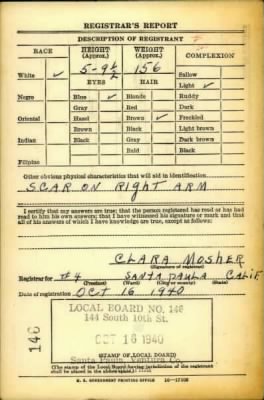 REGISTRAR'S REPORT
DESCRIPTION OF REGISTRANT
RACE HEIGHT (Approx.) WEIGHT (Approx.) COMPLEXION
White ✓ 5-9½ 156 Sallow
EYES HAIR Light ✓
Negro Blue ✓ Blonde Ruddy
Gray Red Dark
Oriental Hazel Brown ✓ Freckled
Brown Black Light brown
Indian Black Gray Dark brown
Bald Black
Filipino
Other obvious physical characteristics that will aid in identification
SCAR ON RIGHT ARM
I certify that my answers are true; that the person registered has read or has had read to him his own answers; that I have witnessed his signature or mark and that all of his answers of which I have knowledge are true, except as follows:
CLARA MOSHER
(Signature of registrar)
Registrar for #4 SANTA PAULA CALIF
(Precinct) (Ward) (City or county) (State)
Date of registration OCT 16 1940
LOCAL BOARD NO. 146
144 South 10th St.
146
OCT 16 1940
Santa Paula, Ventura Co.
(STAMP OF LOCAL BOARD)
(The stamp of the Local Board having jurisdiction of the registrant shall be placed in the above space.)
U. S. GOVERNMENT PRINTING OFFICE 16-17105